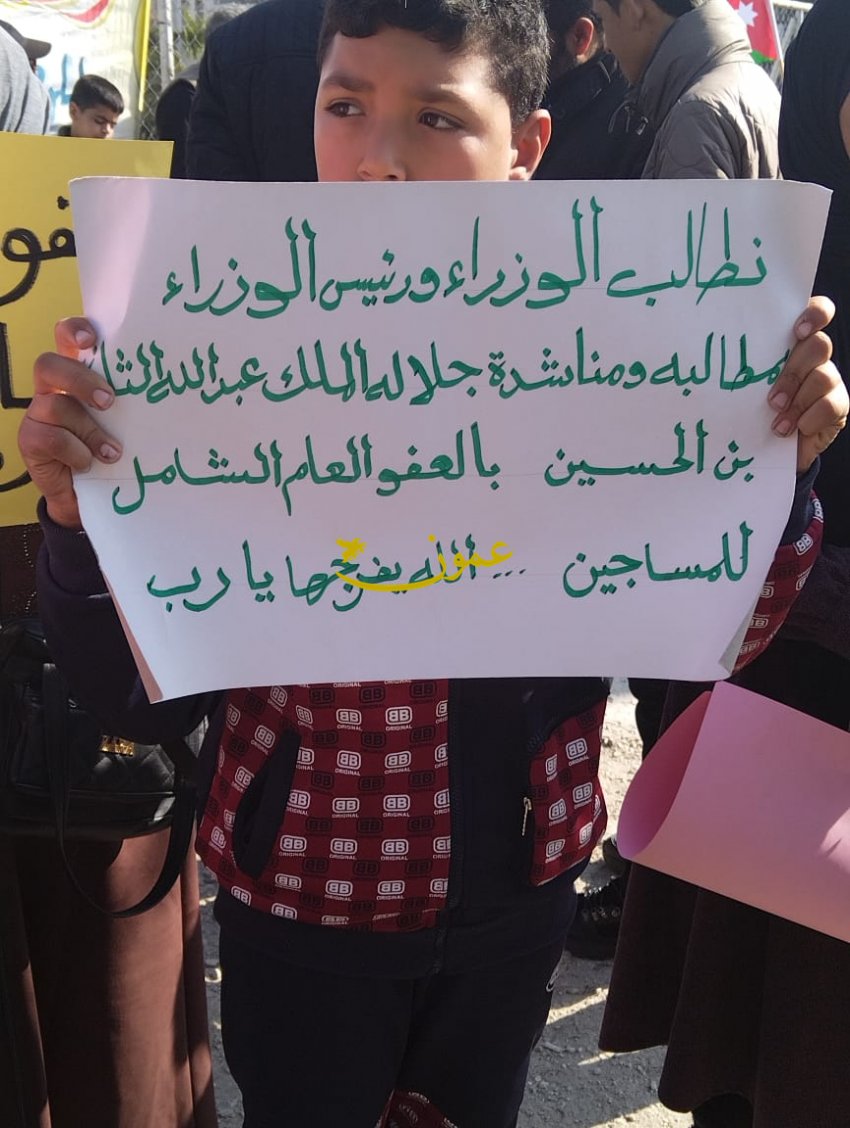 نطالب الوزراء ورئيس الوزراء
مطالبه ومناشدة جلاله الملك عبدالله الثاني
بن الحسين بالعفو العام الشامل
للمساجين ... الله يفرجها يا رب
عمون
BB ORIGINAL